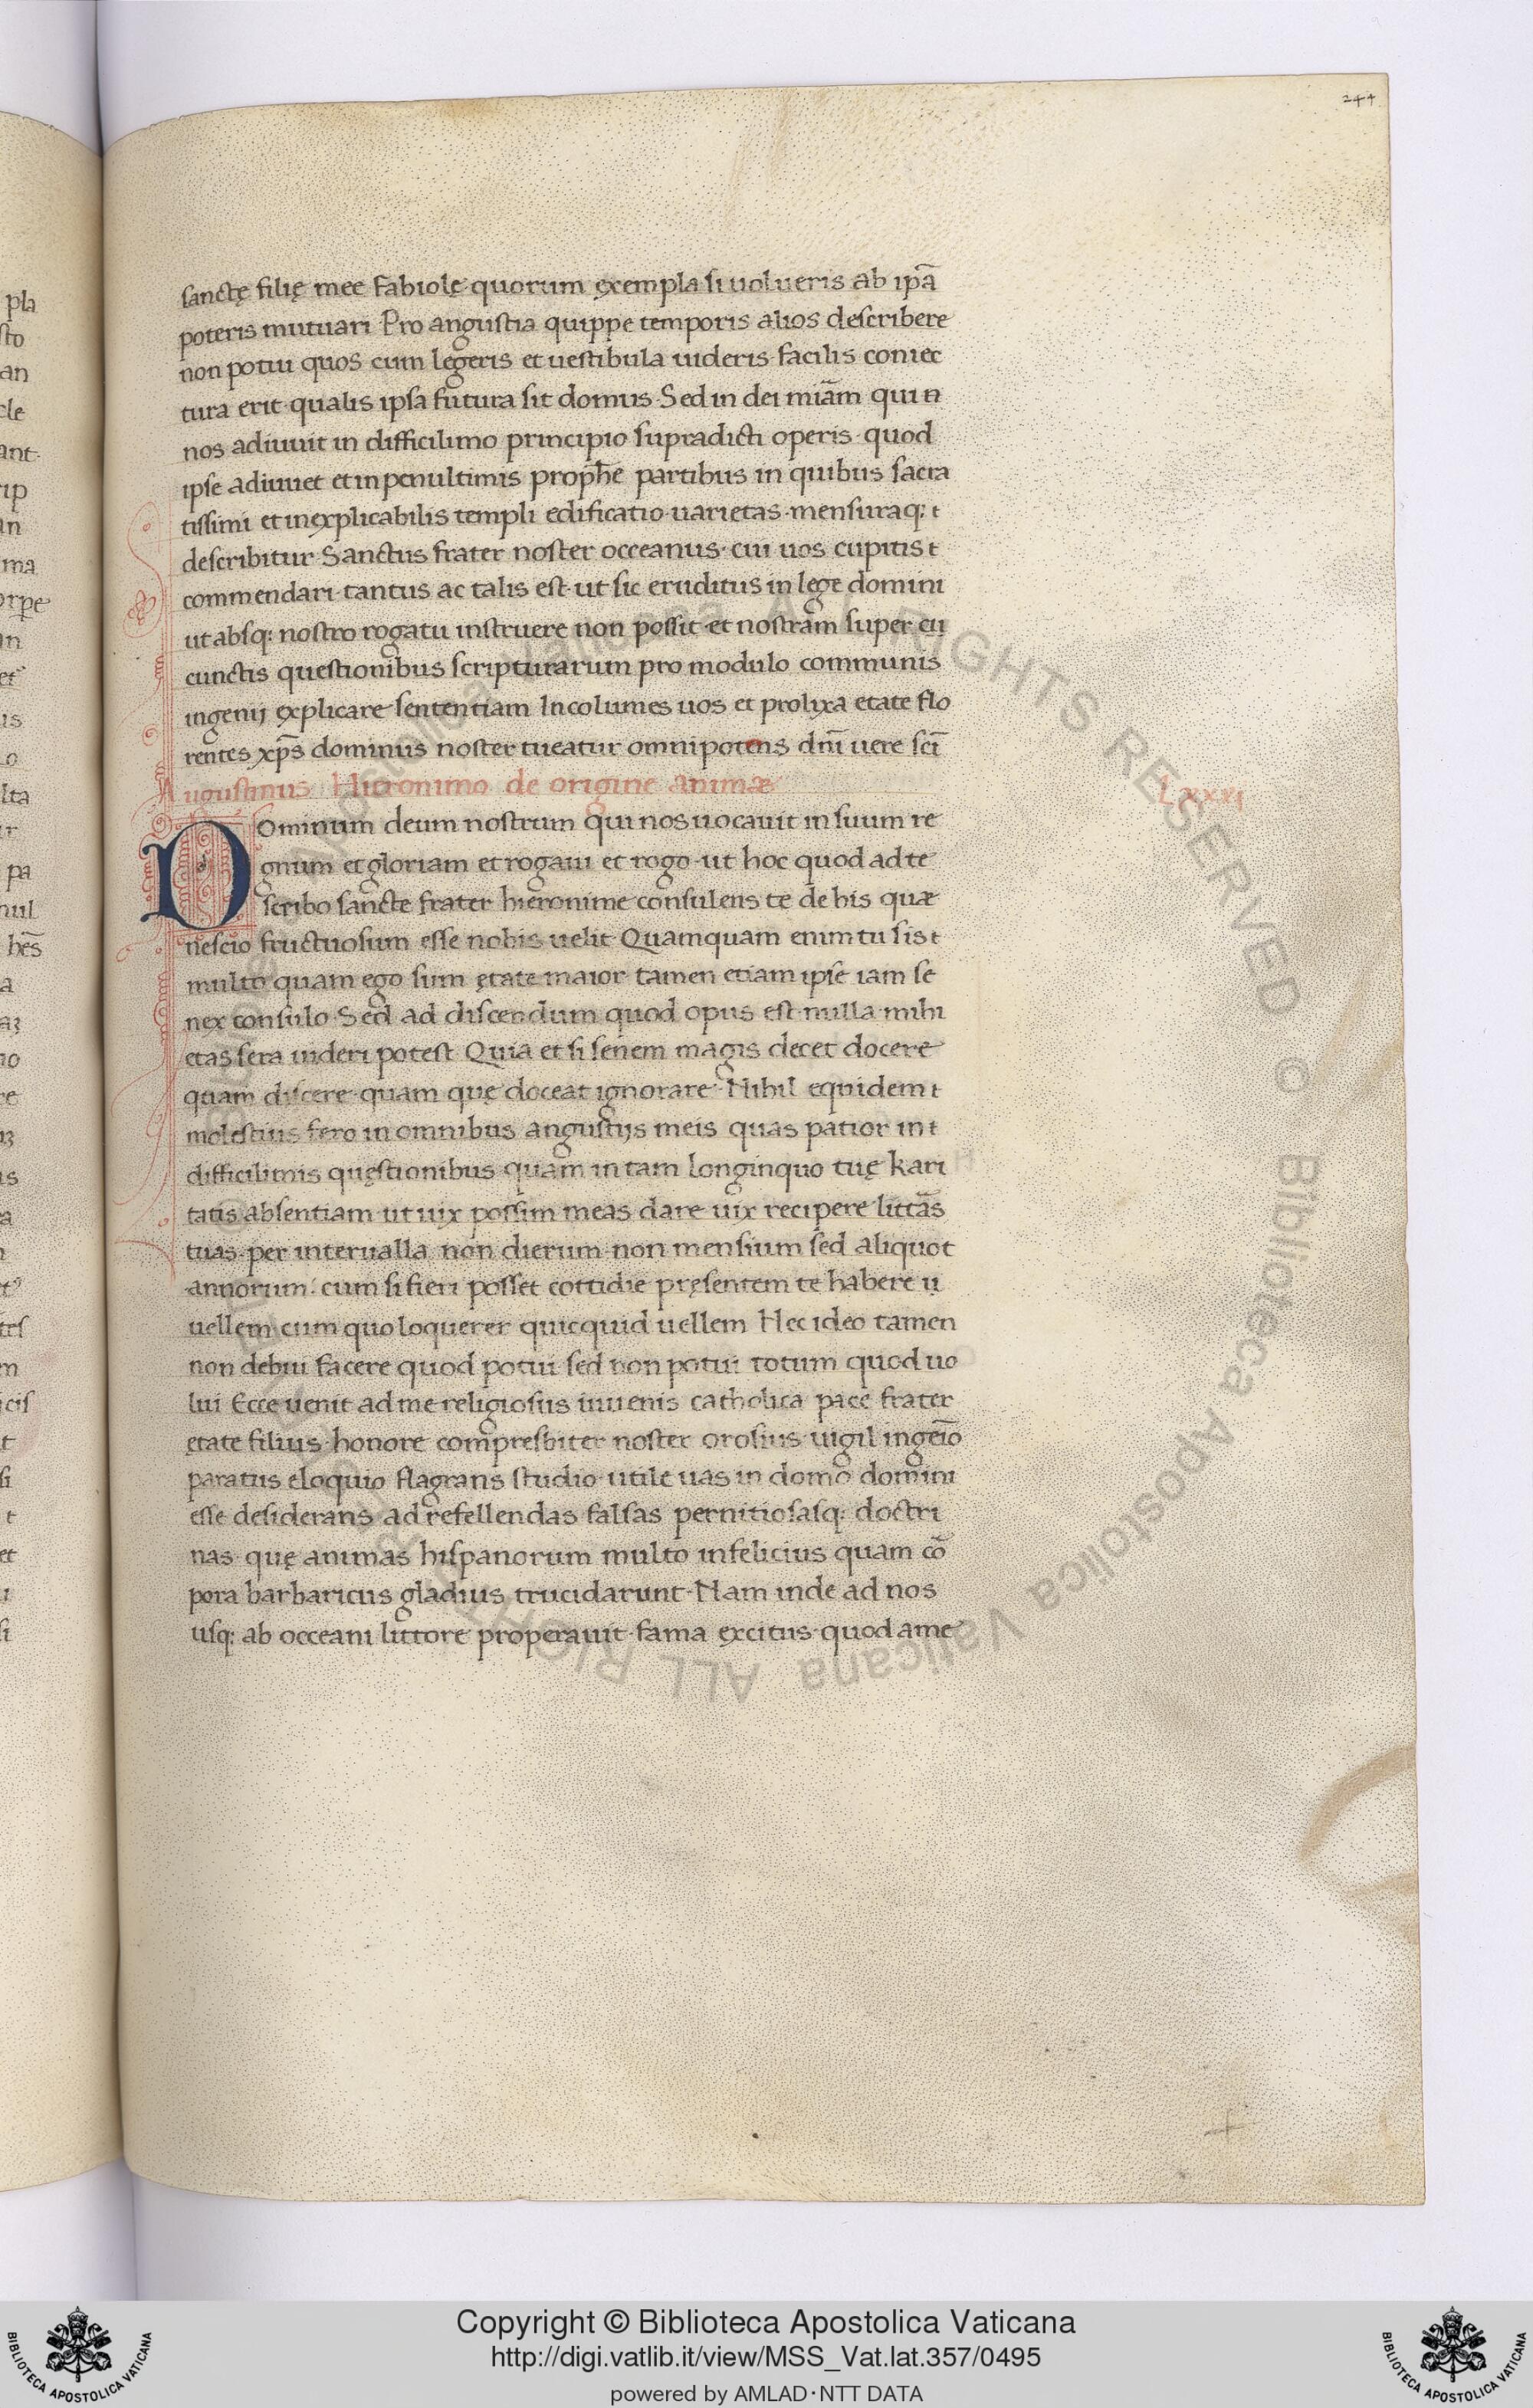 244
sanctę filię mee fabiolę quorum exempla si uolueris ab ip̄a
poteris mutuari Pro angustia quippe temporis alios describere
non potui quos cum legeris et uestibula uideris facilis coniec
tura erit qualis ipsa futura sit domus Sed in dei mīam qui n
nos adiuuit in difficilimo principio supradicti operis quod
ipse adiuuet et in penultimis prophe partibus in quibus sacra
tissimi et inexplicabilis templi edificatio uarietas mensuraq: t
describitur Sanctus frater noster occeanus cui uos cupitis t
commendari tantus ac talis est ut sic eruditus in lege domini
ut absq: nostro rogatu instruere non possit et nostram super cu
cunctis questionibus scripturarum pro modulo communis
ingenij explicare sententiam Incolumes uos et prolixa etate flo
rentes xp̄s dominus noster tueatur omnipotens dn̄i uere sc̄i
Augustinus Hieronimo de origine animæ
Lxxxi
DOminum deum nostrum qui nos uocauit in suum re
gnum et gloriam et rogaui et rogo ut hoc quod ad te
scribo sancte frater hieronime consulens te de his quæ
nescio fructuosum esse nobis uelit Quamquam enim tu sis t
multo quam ego sum ętate maior tamen etiam ipse iam se
nex consulo Sed ad discendum quod opus est nulla mihi
etas sera uideri potest Quia et si senem magis decet docere
quam discere quam quę doceat ignorare Nihil equidem t
molestius fero in omnibus angustijs meis quas patior in t
difficilimis quęstionibus quam in tam longinquo tuę kari
tatis absentiam ut uix possim meas dare uix recipere littār̄as
tuas per interualla non dierum non mensium sed aliquot
annorum cum si fieri posset cottidie pręsentem te habere u
uellem cum quo loquerer quicquid uellem Nec ideo tamen
non debui facere quod potui sed non potui totum quod uo
lui Ecce uenit ad me religiosus iuuenis catholica pace frater
ętate filius honore compresbiter noster orosius uigil ingeīo
paratus eloquio flagrans studio utile uas in domo domini
esse desiderans ad refellendas falsas pernitiosasq: doctri
nas quę animas hispanorum multo infelicius quam cō
pora barbaricus gladius trucidarunt Nam inde ad nos
usq: ab occeani littore properauit fama excitus quod a me
Copyright © Biblioteca Apostolica Vaticana
http://digi.vatlib.it/view/MSS_Vat.lat.357/0495
powered by AMLAD·NTT DATA